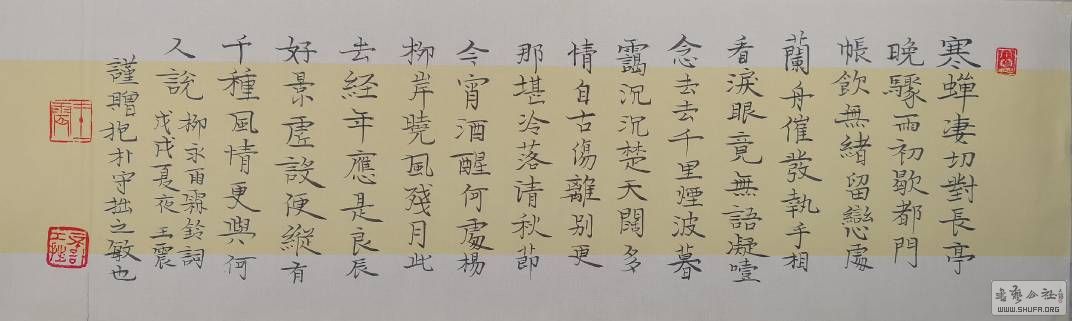 寒蟬淒切對長亭
晚驟雨初歇都門
帳飲無緒留戀處
蘭舟催發執手相
看淚眼竟無語凝噎
念去去千里煙波暮
靄沉沉楚天闊多
情自古傷離別更
那堪冷落清秋節
今宵酒醒何處楊
柳岸曉風殘月此
去經年應是良辰
好景虛設便縱有
千種風情更與何
人說 柳永雨霖鈴詞
戊戌夏夜 王震
謹贈抱朴守拙之敏也
王震
書藝公社
WWW.SHUFA.ORG